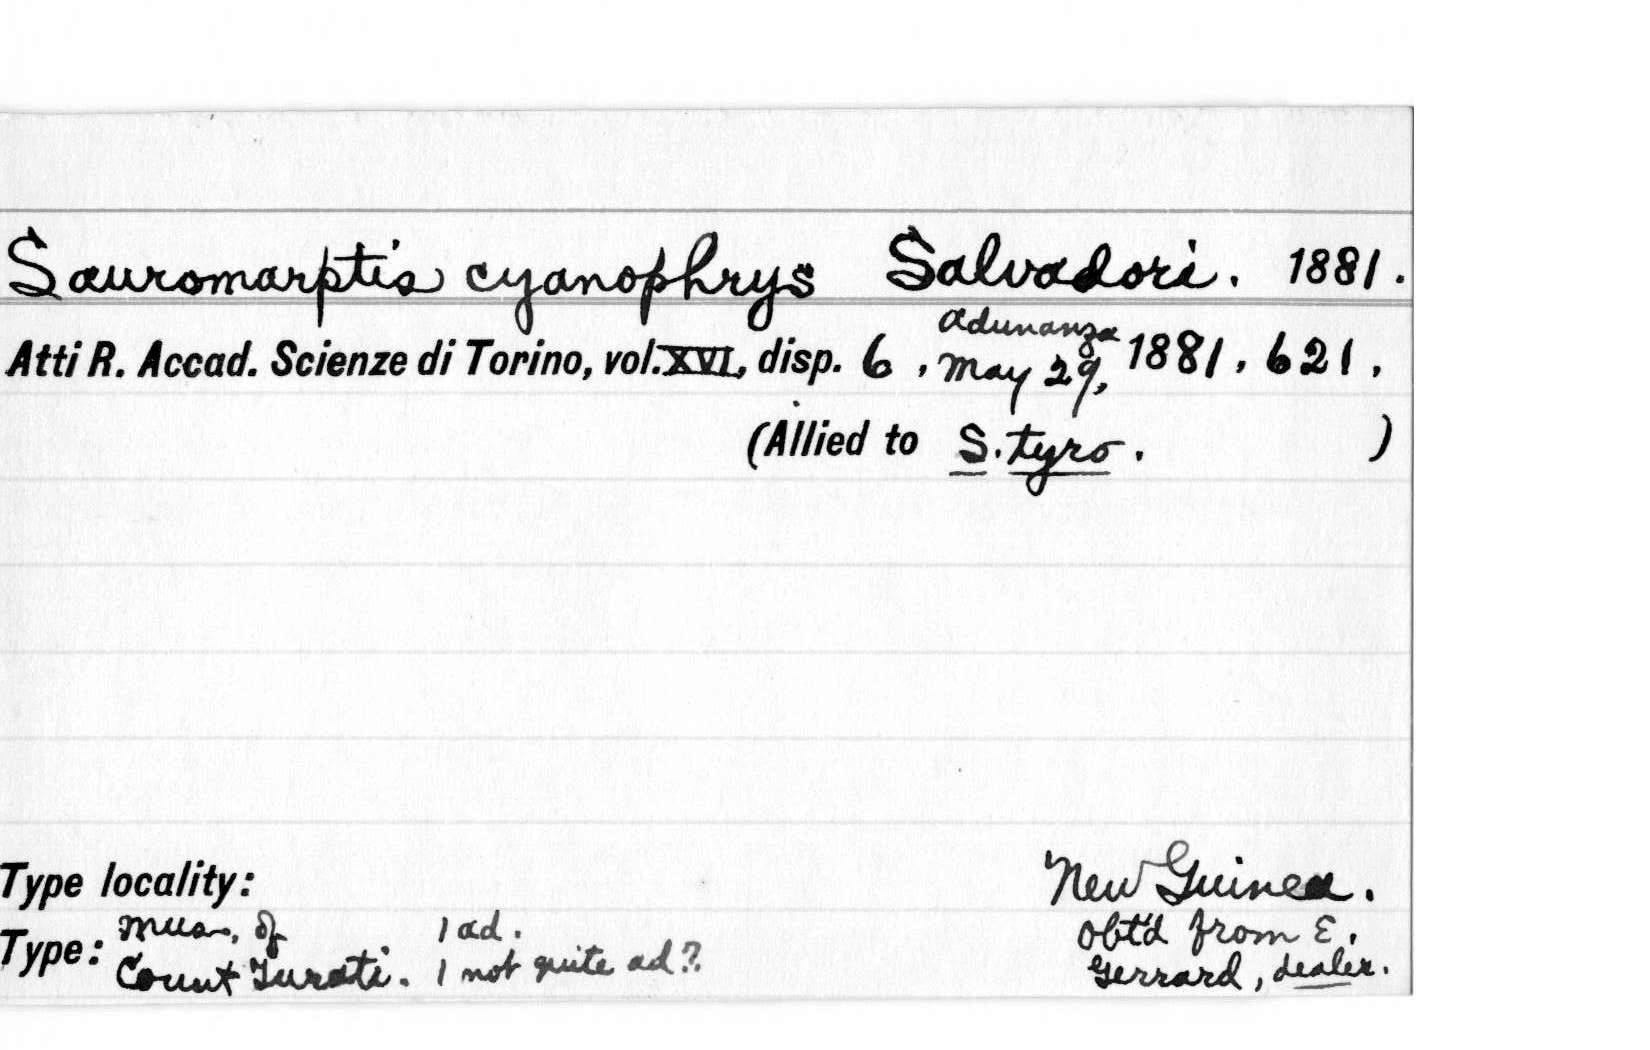 Sauromarptis cyanophrys Salvadori. 1881.
Atti R. Accad. Scienze di Torino, vol. XVI, disp. 6, Adunanza May 29, 1881, 621.
(Allied to S. tyro. )
Type locality: New Guinea.
Type: Mus. of Count Turati. 1 ad. 1 not quite ad? Obt'd from E. Gerrard, dealer.